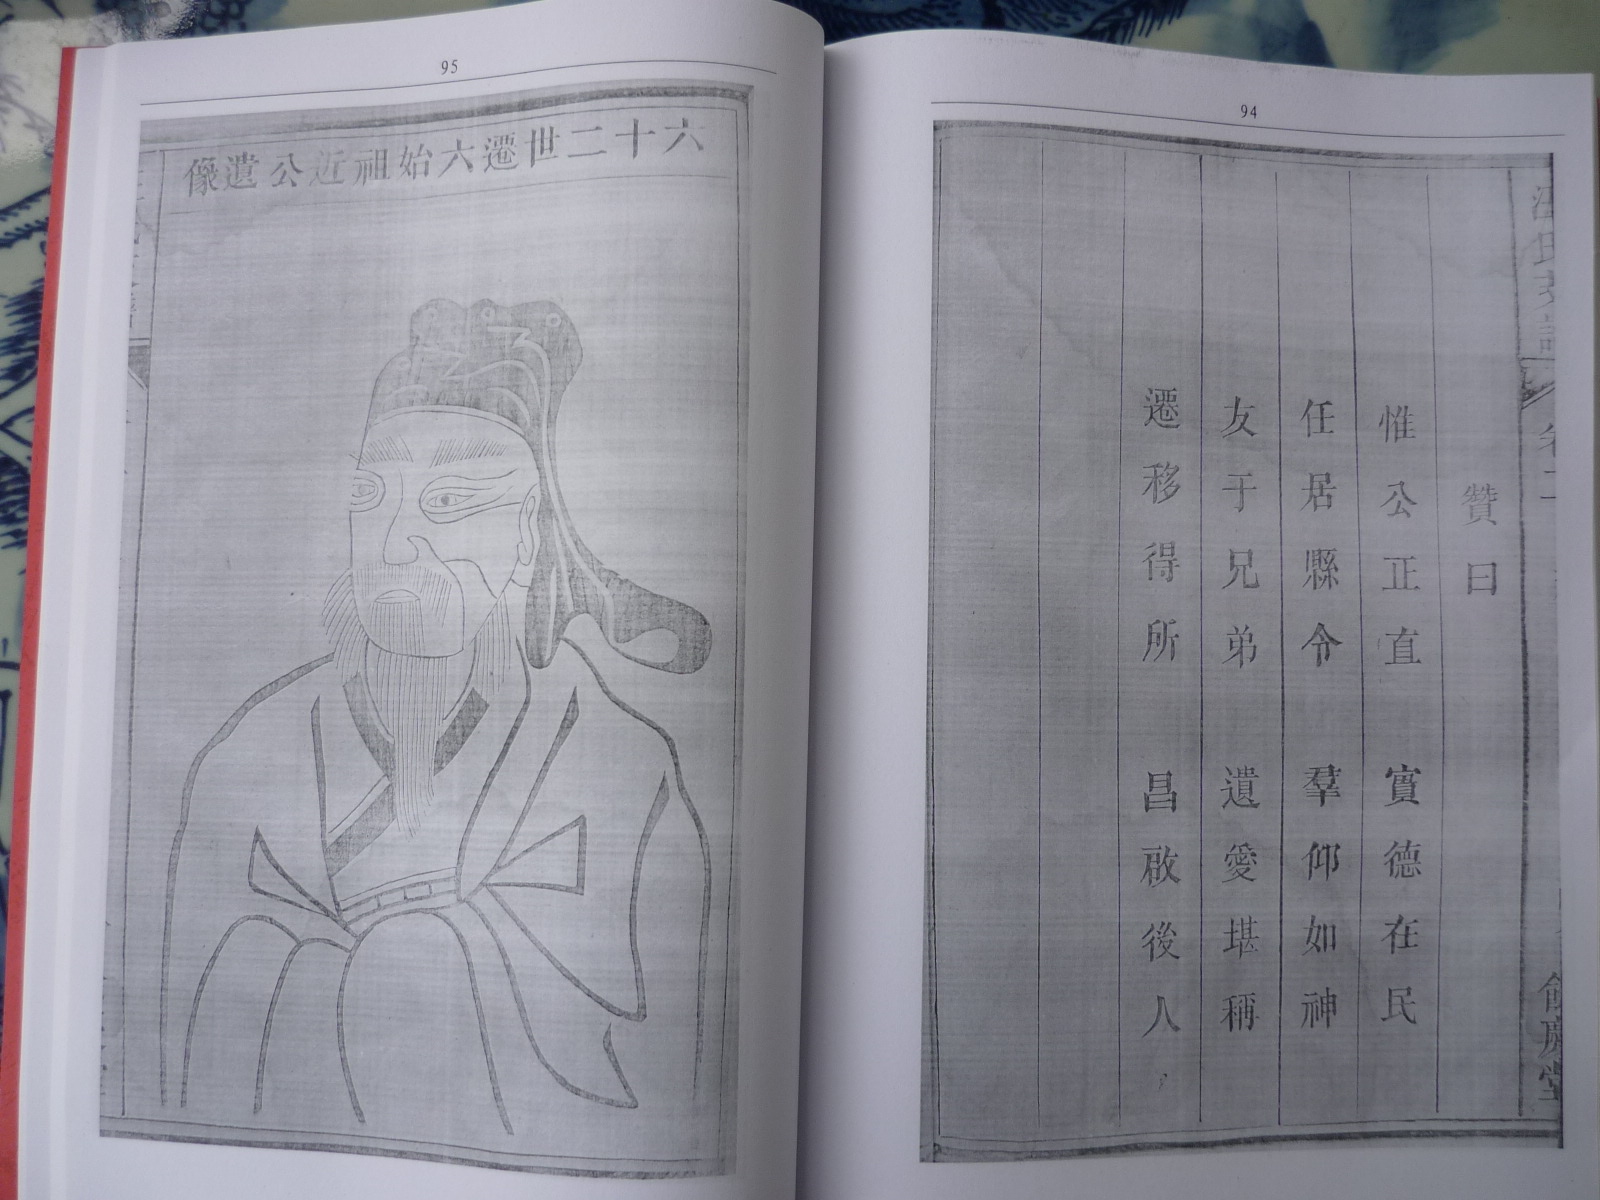 94
氏支譜
餘慶堂
贊曰
惟公正直 實德在民
任居縣令 羣仰如神
友于兄弟 遺愛堪稱
遷移得所 昌啟後人
95
六十二世遷六始祖近公遺像